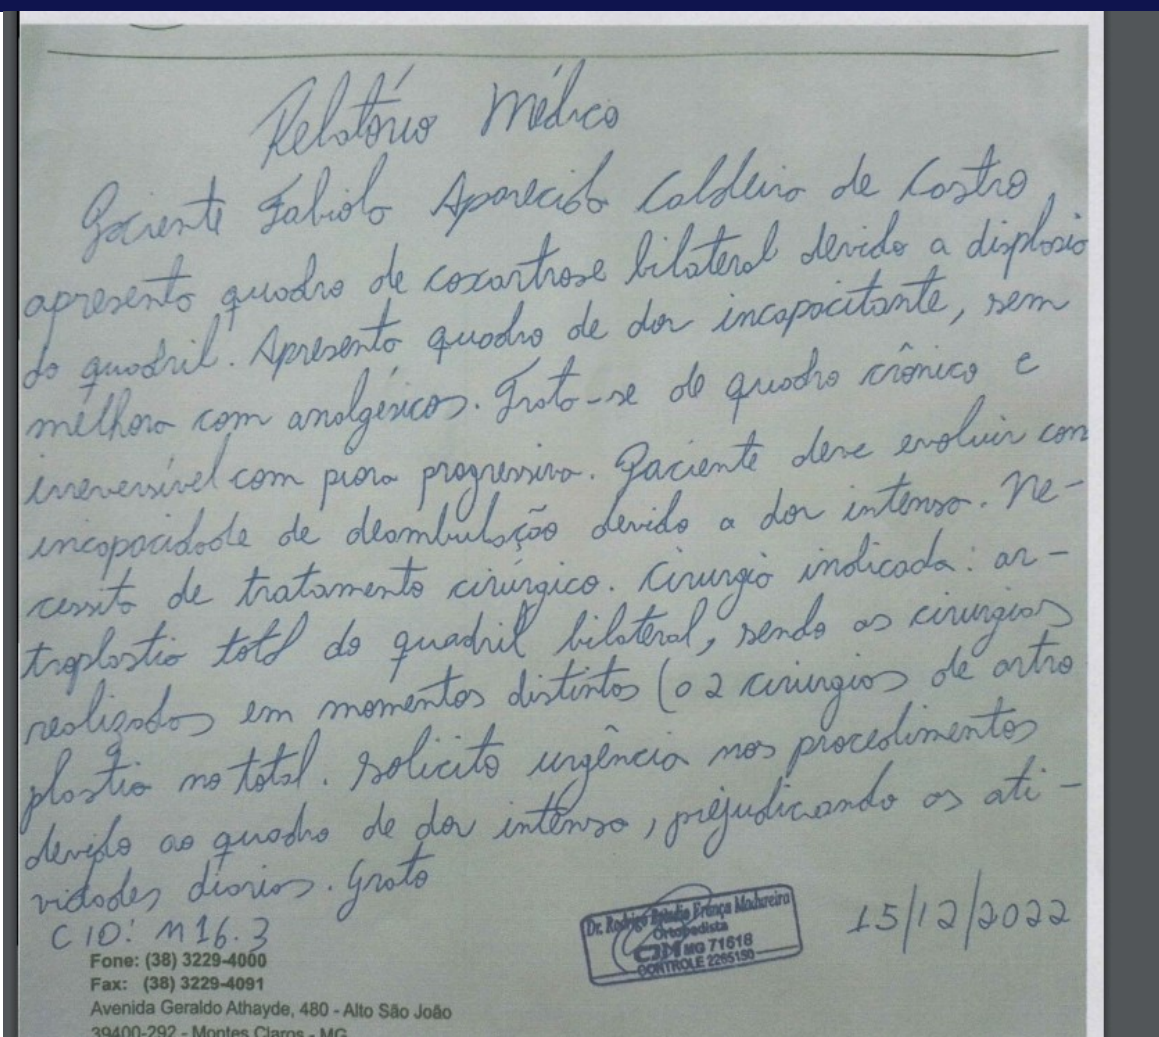 Relatório Médico
Paciente Fabiola Aparecida Caldeira de Castro,
apresenta quadro de coxartrose bilateral devido a displasia
do quadril. Apresenta quadro de dor incapacitante, sem
melhora com analgésicos. Trata-se de quadro crônico e
irreversível com piora progressiva. Paciente deve evoluir com
incapacidade de deambulação devido a dor intensa. Ne-
cessita de tratamento cirúrgico. Cirurgia indicada: ar-
troplastia total do quadril bilateral, sendo as cirurgias
realizadas em momentos distintos (o 2 cirurgias de artro
plastia no total. Solicito urgência nos procedimentos
devido ao quadro de dor intensa, prejudicando as ati-
vidades diarias. Grato
CID: M16.3
15/12/2022
Dr. Rodrigo França Madureira
Ortopedista
CRM MG 71618
CONTROLE 2265150
Fone: (38) 3229-4000
Fax: (38) 3229-4091
Avenida Geraldo Athayde, 480 - Alto São João
39400-292 - Montes Claros - MG